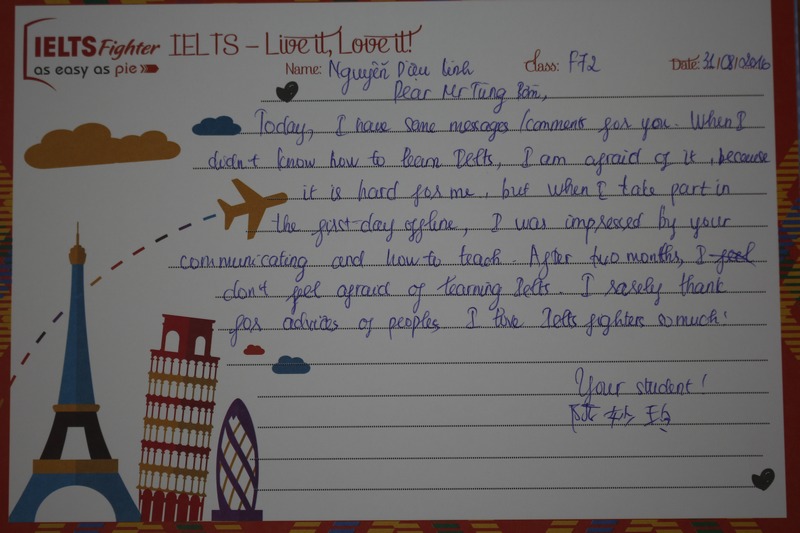 IELTS Fighter IELTS – Live it, Love it!
as easy as pie
Name: Nguyễn Diệu Linh Class: F72 Date: 31/08/2016
Dear Mr Tùng
Today, I have some messages/comments for you. When I
didn't know how to learn Ielts, I am afraid of it, because
it is hard for me, but when I take part in
the first-day offline, I was impressed by your
communicating and how to teach. After two months, I feel
don't feel afraid of learning Ielts. I thank
for advices of peoples I love Ielts fighters so much!
Your student!